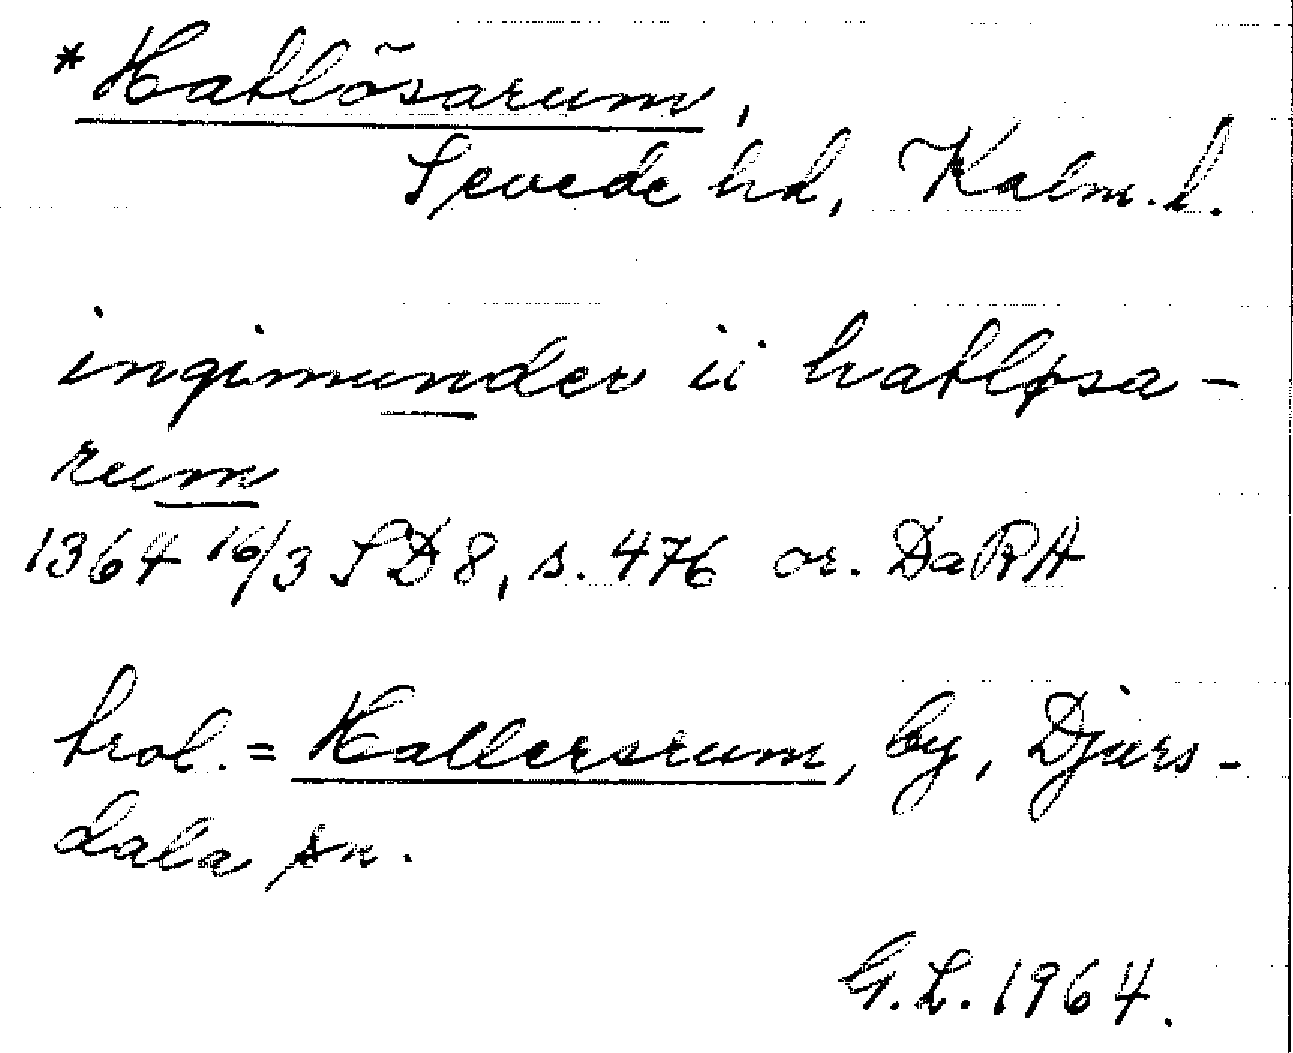 *Hatlösarum,
Sevede hd, Kalm. l.
ingimunder ii hatløsa-
rum
1364 16/3 SD 8, s. 476 or. DaRA
trol. = Hallersrum, by, Djurs-
dala sn.
G. L. 1964.